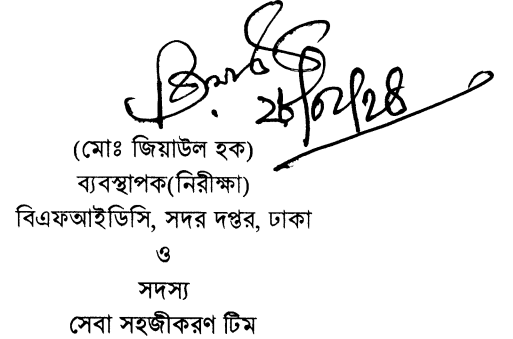 (মোঃ জিয়াউল হক)
ব্যবস্থাপক(নিরীক্ষা)
বিএফআইডিসি, সদর দপ্তর, ঢাকা
ও
সদস্য
সেবা সহজীকরণ টিম